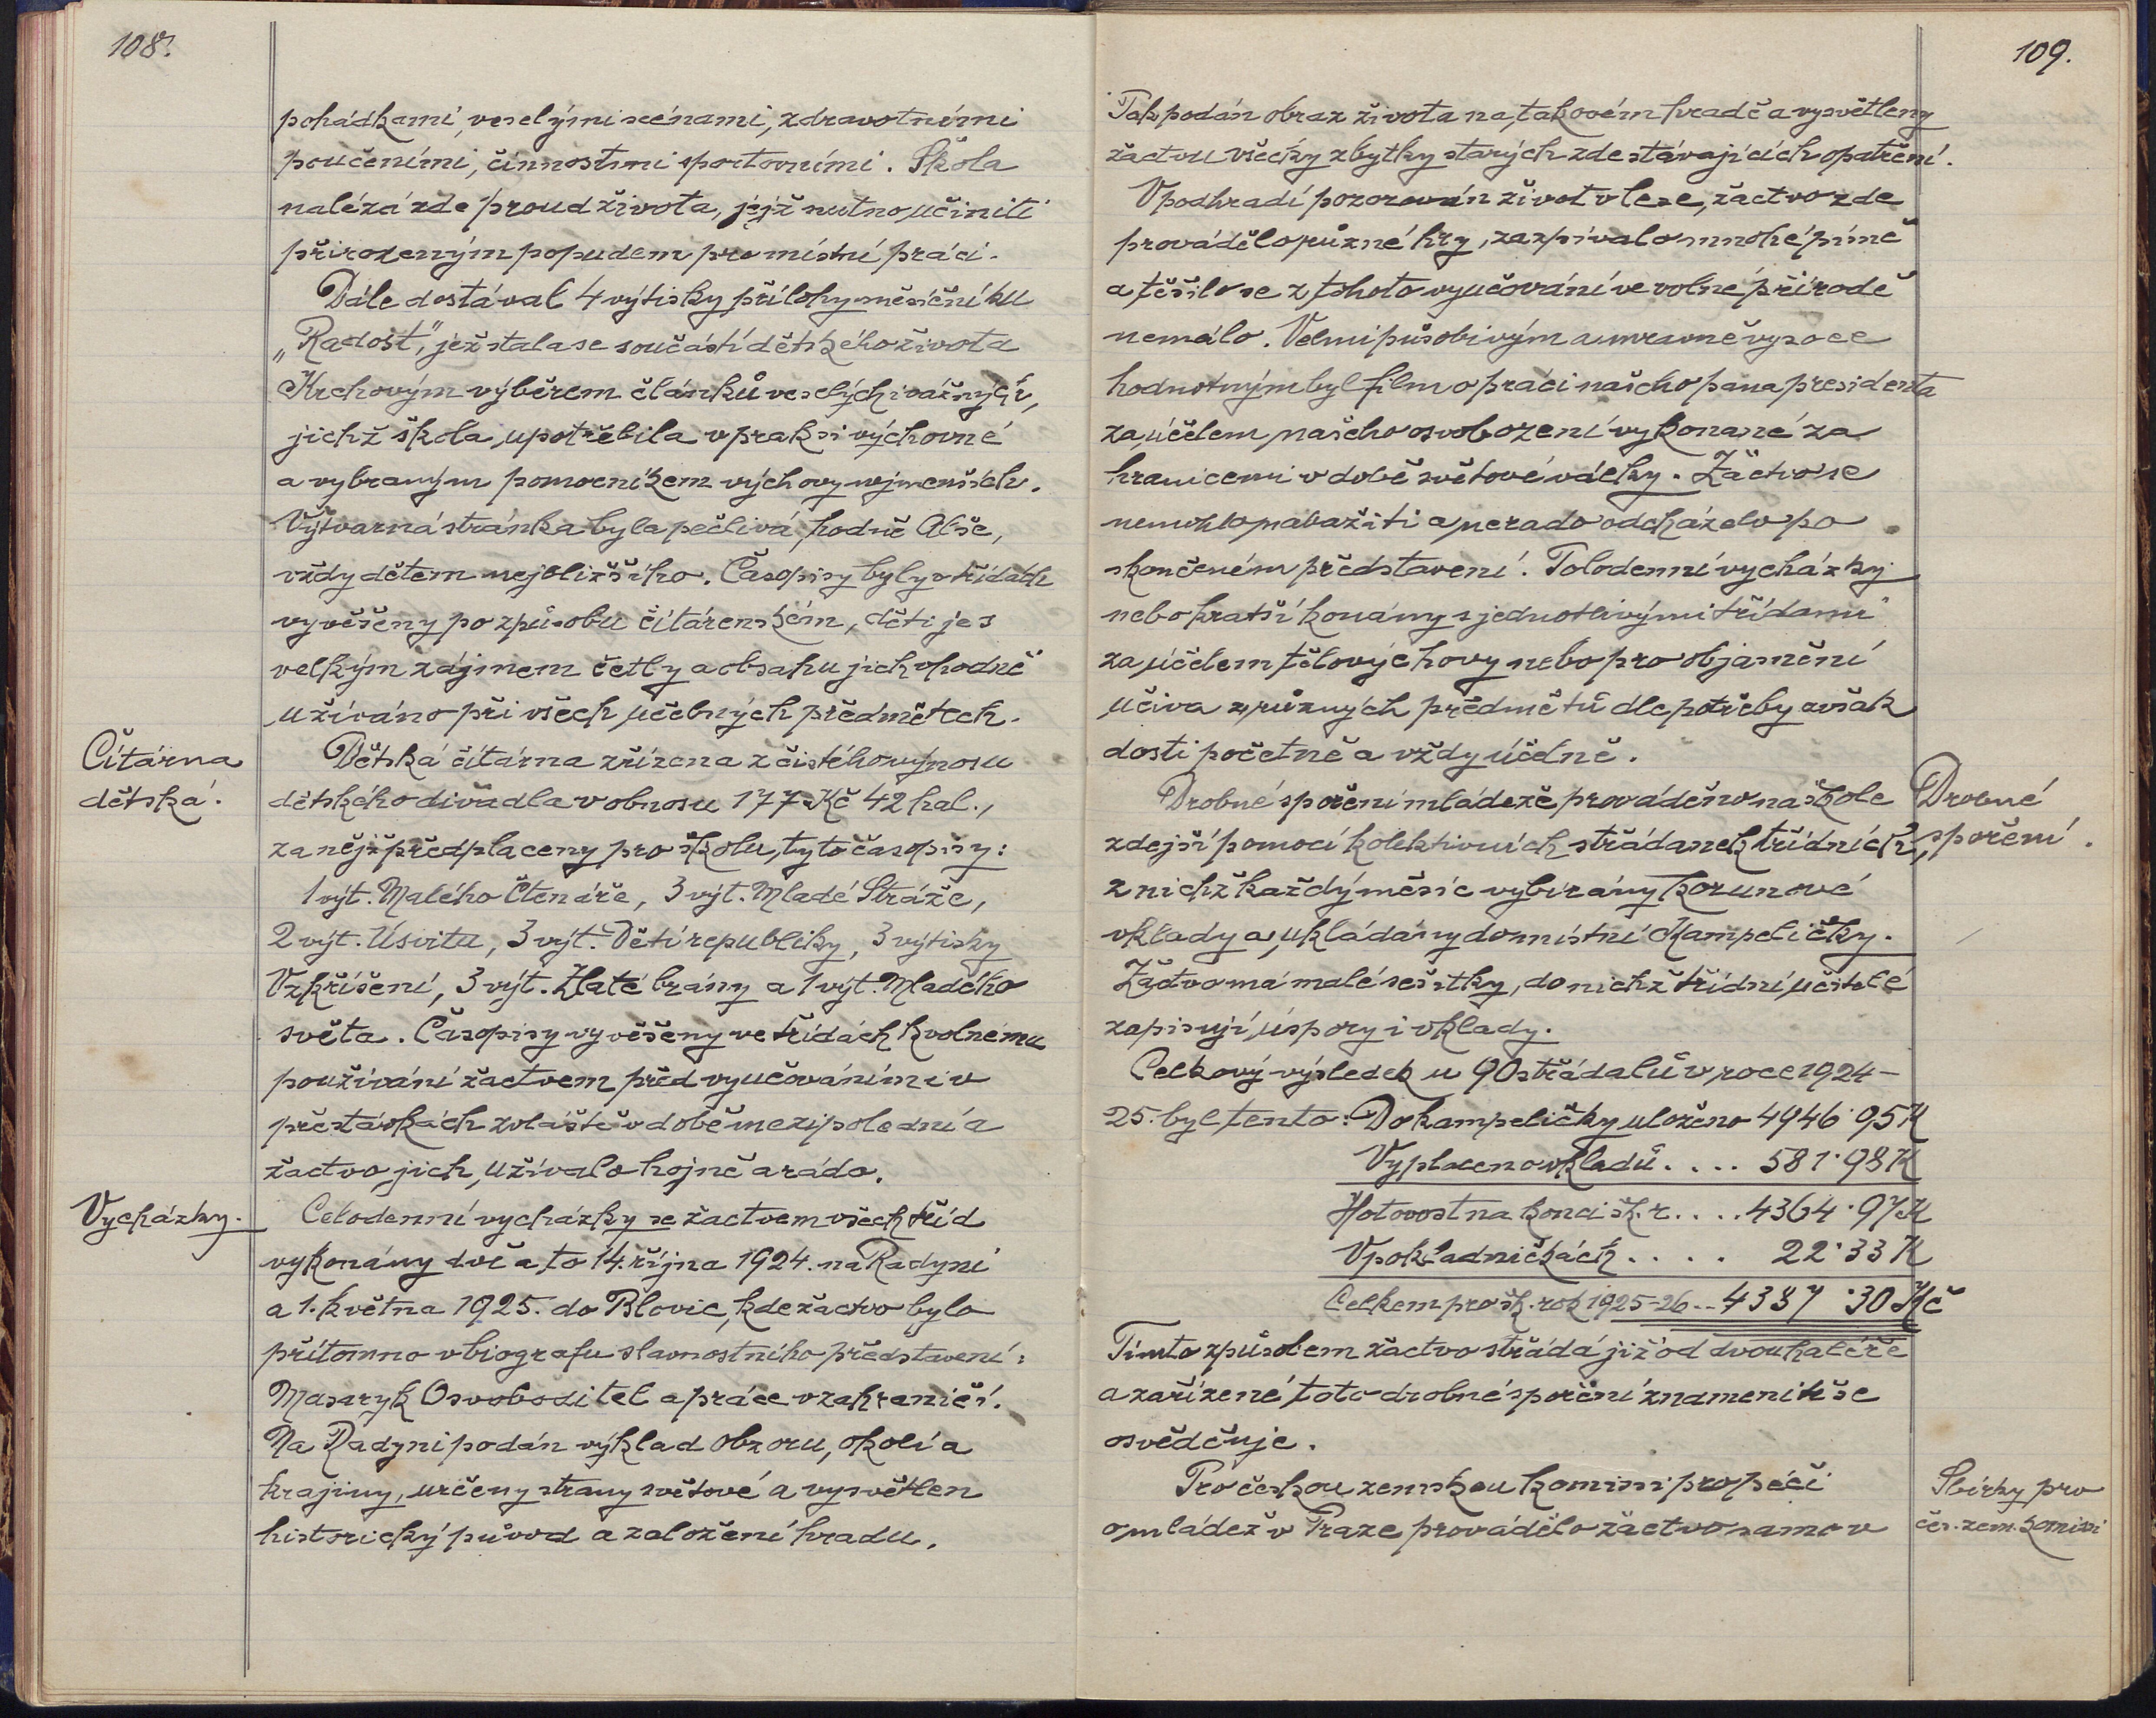 108.
pohádkami, veselými scénami, zdravotními
poučeními, činnostmi sportovními. Škola
nalézá zde proud života, jejž nutno učiniti
přirozeným popudem pro místní práci.
Dále dostával 4 výtisky přílohy měsíčníku
„Radost", jež stala se součástí dětského života
výběrem článků veselých i vážných,
jichž škola upotřebila v praksi výchovné
a vybraným pomocníkem výchovy nejmenších.
Výtvarná stránka byla pečlivá, hodně Alše,
vždy dětem nejbližšího. Časopisy byly v třídách
vyvěšeny po způsobu čítárenském, děti je s
velkým zájmem četly a obsahu jich vhodně
užíváno při všech učebných předmětech.
Čítárna
dětská.
Dětská čítárna zřízena z čistého výnosu
dětského divadla v obnosu 177 Kč 42 hal.,
za nějž předplaceny pro školu tyto časopisy:
1 výt. Malého Čtenáře, 3 výt. Mladé Stráže,
2 výt. Úsvitu, 3 výt. Dětí republiky, 3 výtisky
Vzkříšení, 3 výt. Zlaté brány a 1 výt. Mladého
světa. Časopisy vyvěšeny ve třídách k volnému
používání žactvem před vyučováním i v
přestávkách zvláště v době mezipolední a
žactvo jich užívalo hojně a rádo.
Vycházky.
Celodenní vycházky se žactvem všech tříd
vykonány dvě a to 14. října 1924. na Radyni
a 1. května 1925. do Blovic, kde žactvo bylo
přítomno v biografu slavnostního představení:
Masaryk Osvoboditel a práce v zahraničí.
Na Radyni podán výklad obzoru, okolí a
krajiny, určeny strany světové a vysvětlen
historický původ a založení hradu.
109.
Tak podán obraz života na takovém hradě a vysvětleny
žactvu všecky zbytky starých zde stávajících opatření.
V podhradí pozorován život v lese, žactvo zde
provádělo různé hry, zazpívalo mnohé písně
a těšilo se z tohoto vyučování ve volné přírodě
nemálo. Velmi působivým a mravně vysoce
hodnotným byl film o práci našeho pana presidenta
za účelem našeho osvobození vykonané za
hranicemi v době světové války. Žactvo se
nemohlo nabažiti a nerado odcházelo po
skončeném představení. Polodenní vycházky
nebo kratší konány s jednotlivými třídami
za účelem tělovýchovy nebo pro objasnění
učiva z různých předmětů dle potřeby avšak
dosti početně a vždy účelně.
Drobné spoření mládeže prováděno na škole
zdejší pomocí kolektivních střádanek třídních,
z nichž každý měsíc vybírány korunové
vklady a ukládány do místní Kampeličky.
Žactvo má malé sešitky, do nichž třídní učitelé
zapisují úspory i vklady.
Drobné
spoření.
Celkový výsledek u 90 střádalů v roce 1924-
25. byl tento: Do kampeličky uloženo 4946·95 K
Vyplaceno vkladů .... 581·98 K
Hotovost na konci šk. r. .... 4364·97 K
V pokladničkách .... 22·33 K
Celkem pro šk. rok 1925-26 .. 4387·30 Kč
Tímto způsobem žactvo střádá již od dvouhaléře
a zařízené toto drobné spoření znamenitě se
osvědčuje.
Pro českou zemskou komisi pro péči
o mládež v Praze provádělo žactvo samo v
Sbírky pro
čes. zem. komisi